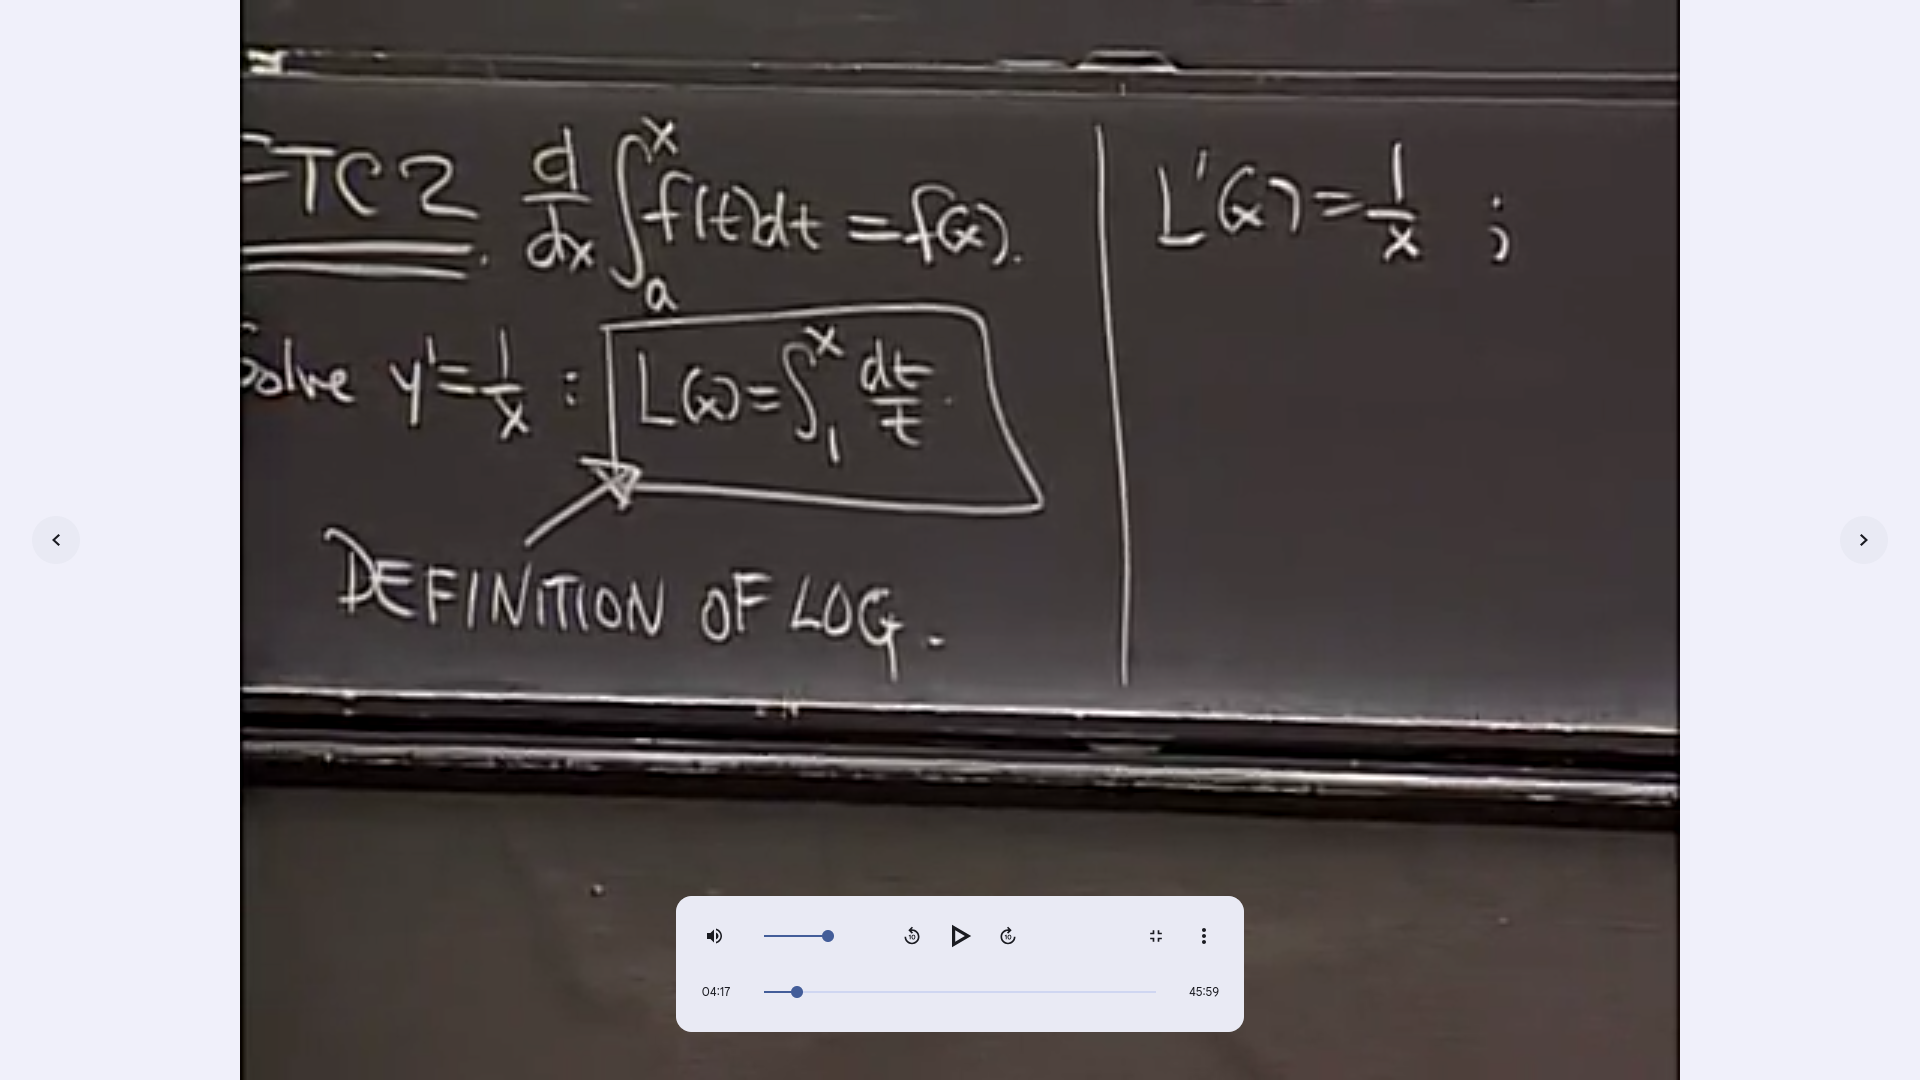 FTC2. d/dx ∫_a^x f(t)dt = f(x).
Solve y' = 1/x : L(x) = ∫_1^x dt/t.
DEFINITION OF LOG.
L'(x) = 1/x ;
10
10
04:17
45:59